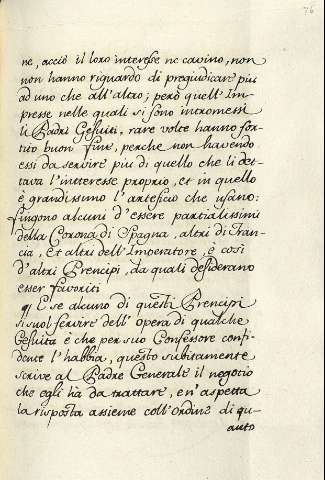 76
ne, acciò il loro interesse ne cavino, non
non hanno riguardo di pregiudicare più
ad uno che all'altro; però quell'Im-
presse nelle quali si sono intromessi
li Padri Gesuiti, rare volte hanno sor-
tito buon fine, perche non havendo
essi da servire più di quello che li det-
tava l'interesse proprio, et in quello
è grandissimo l'artificio che usano:
fingono alcuni d'essere partialissimi
della Corona di Spagna, altri di Fran-
cia, Et altri dell'Imperatore, e così
d'altri Prencipi, da quali desiderano
esser favoriti
E se alcuno di questi Prencipi
si vuol servire dell'opera di qualche
Gesuita e che per suo Confessore confi-
dente l'habbia, questo subitamente
scrive al Padre Generale il negotio
che egli hà da trattare, e n'aspetta
la risposta assieme coll'Ordine di qu-
anto